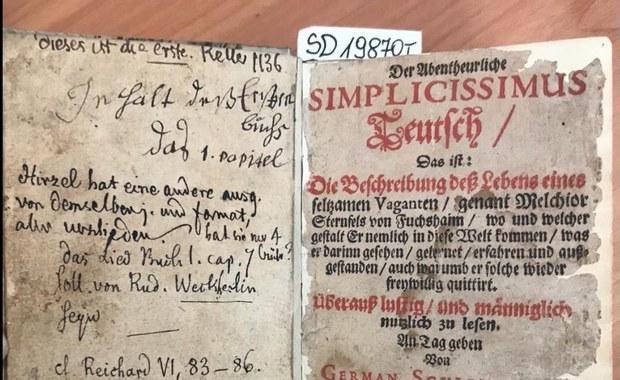 dieses ist die erste. Keller 1136
Inhalt deß Ersten
buchs
das 1. capitel
Hirzel hat eine andere ausg.
von demselben j. und format,
aber verschieden. hat sie nur 4
Bücher?
das Lied Buch 1. cap. 7
soll von Rud. Weckherlin
seyn
cf Reichard VI, 83-86.
SD 19870-
Der Abentheurliche
SIMPLICISSIMUS
Teutsch /
Das ist:
Die Beschreibung deß Lebens eines
seltzamen Vaganten / genant Melchior
Sternfels von Fuchshaim / wo und welcher
gestalt Er nemlich in diese Welt kommen / was
er darinn gesehen / gelernet / erfahren und auß-
gestanden / auch warumb er solche wieder
freywillig quittirt.
Überauß lustig / und männiglich
nutzlich zu lesen.
An Tag geben
Von
GERMAN